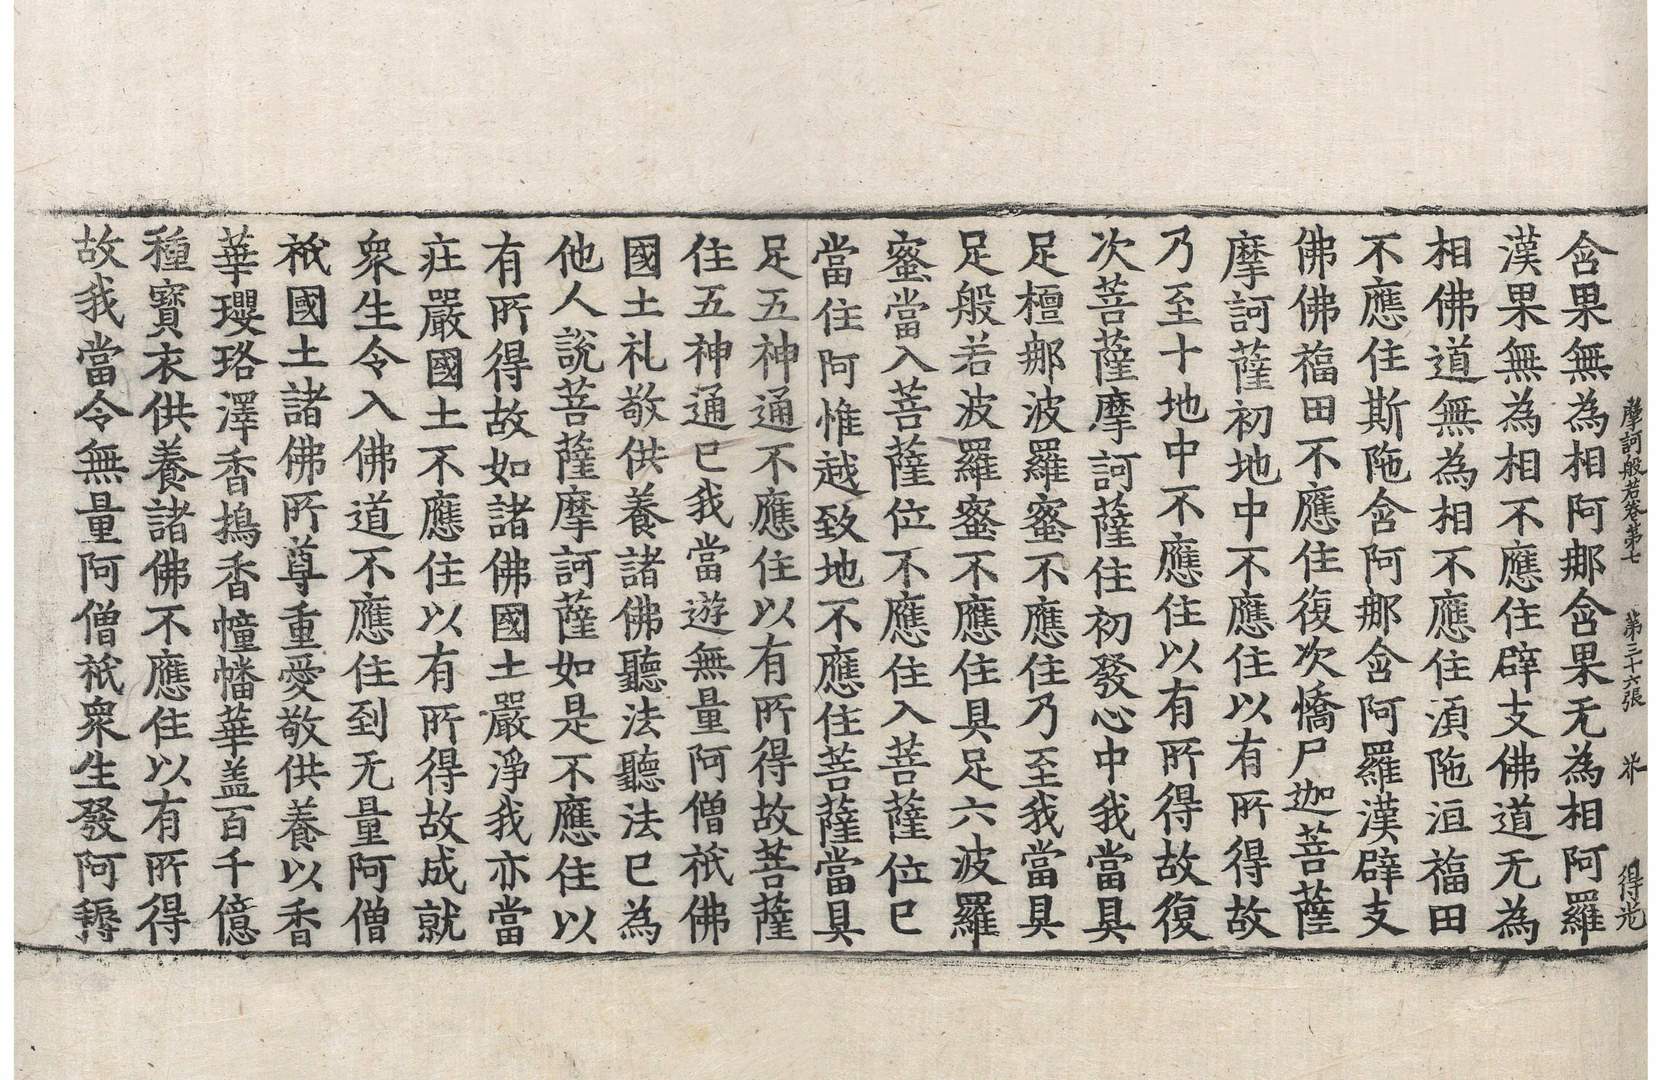 摩訶般若卷第七 第三十六張 柰 得光
含果無為相阿𨚗含果无為相阿羅
漢果無為相不應住辟支佛道无為
相佛道無為相不應住湏陁洹福田
不應住斯陁含阿𨚗含阿羅漢辟支
佛佛福田不應住復次憍尸迦菩薩
摩訶薩初地中不應住以有所得故
乃至十地中不應住以有所得故復
次菩薩摩訶薩住初發心中我當具
足檀𨚗波羅蜜不應住乃至我當具
足般若波羅蜜不應住具足六波羅
蜜當入菩薩位不應住入菩薩位已
當住阿惟越致地不應住菩薩當具
足五神通不應住以有所得故菩薩
住五神通已我當遊無量阿僧祇佛
國土礼敬供養諸佛聽法聽法已為
他人說菩薩摩訶薩如是不應住以
有所得故如諸佛國土嚴淨我亦當
庄嚴國土不應住以有所得故成就
衆生令入佛道不應住到无量阿僧
祇國土諸佛所尊重愛敬供養以香
華瓔珞澤香擣香幢幡華盖百千億
種寶衣供養諸佛不應住以有所得
故我當令無量阿僧祇衆生發阿耨